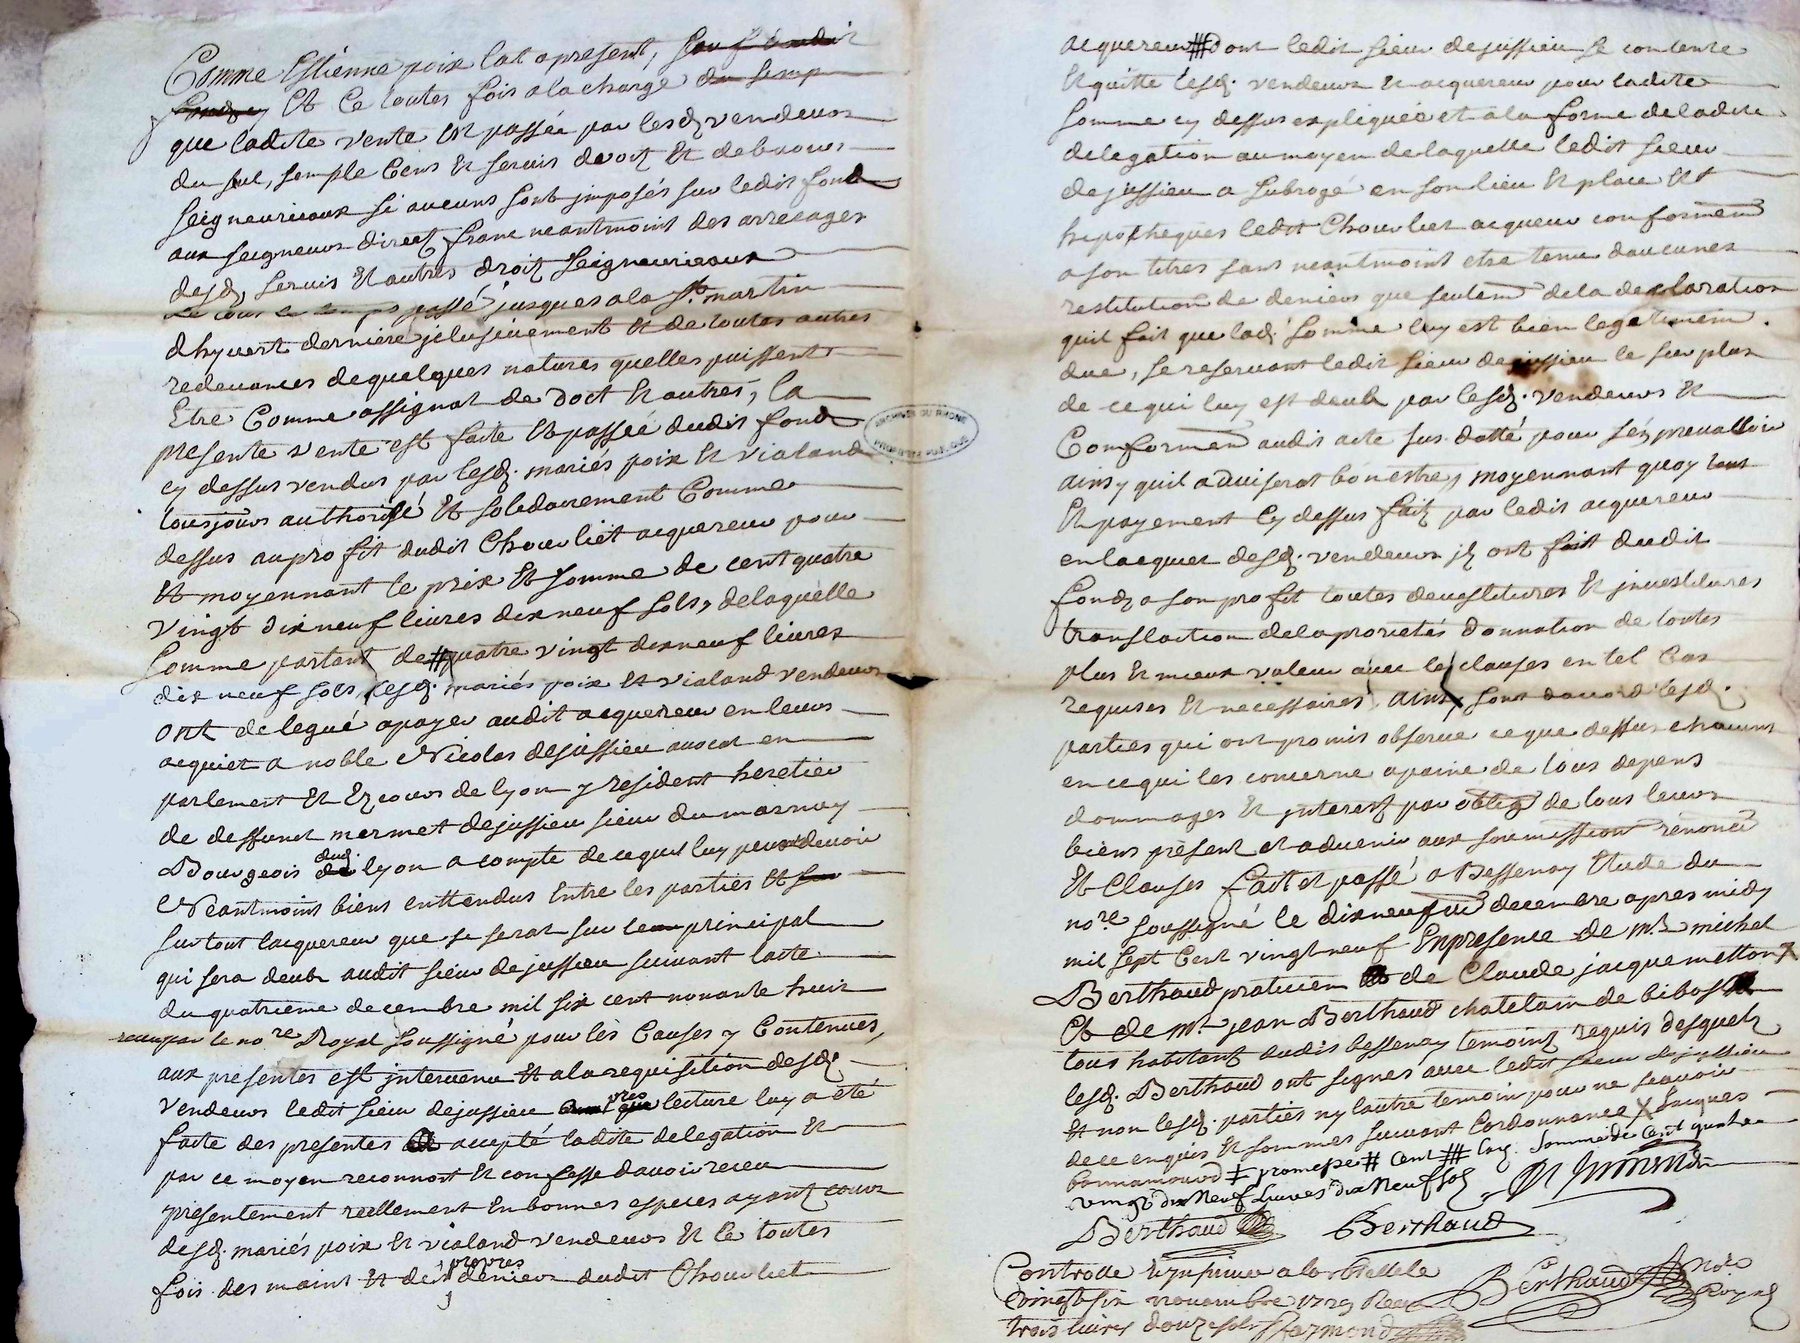 Comme Estienne poix lat apresent, sauf
Et Ce toutes fois ala charge du
que ladite vente est passée par lesd. vendeurs
du sel, semple Cens Et servis devoit Et debvoirs
seigneuriaux si aucuns sont jmposés sur ledit fond
aux seigneurs direct, franc neantmoins des arrerages
desd. servis Et autres droit seigneuriaux
passé jusques a la st. martin
dhyvert derniere jclusivement Et de toutes autres
redevances dequelques natures quelles puissent
Etre Comme assignat de doct Et autres, la
presente vente est faite Et passée dudit fond
cy dessus vendus par lesd. mariés poix Et vialand
tousjours authorisé Et solidairement Comme
dessus au profit dudit Chouvliet acquereur pour
Et moyennant le prix Et somme de cent quatre
vingt dix neuf livres dix neuf sols, delaquelle
somme partant de # quatre vingt dix neuf livres
dix neuf sols, lesd. mariés poix Et vialand vendeurs
ont delegué apayer audit acquereur en leurs
acquiet a noble Nicolas dejussieu avocat en
parlement Et Ez cours de lyon y resident heretier
de deffunct mermet dejussieu sieur dumarnay
Bourgeois dud. lyon a compte de cequil luy peuvent devoir
Neantmoins biens enttendus Entre les parties Et
surtout lacquereur que se serat sur le principal
qui sera deub audit sieur dejussieu suivant lacte
du quatrieme decembre mil six cent nonante huit
receu par le nore. Royal soussigné pour les Causes y Contenues,
aux presentes est jntervenu Et a la requisition desd.
vendeurs ledit sieur dejussieu lecture luy a été
faite des presentes accepté ladite delegation Et
par ce moyen reconnoit Et confesse davoir receu
presentement reellement En bonnes especes ayant cours
desd. mariés poix Et vialand vendeurs Et Ce toutes
fois des maint Et de propres deniers dudit Chouvliet
acquereur # dont ledit sieur dejussieu se contente
Et quitte lesd. vendeurs Et acquereur pour ladite
somme cy dessus expliquée et ala forme deladite
delegation aumoyen delaquelle ledit sieur
dejussieu a subrogé en son lieu Et place Et
hepotheques ledit Chouvliet acqueur conformem
a son titres sans neantmoins etre tenu daucunes
restitution de deniers que seulem dela declaration
quil fait que lad. somme luy est bien legitimem
due, se reservant ledit sieur dejussieu le surplus
de ce qui luy est deub par lesd. vendeurs Et
Conformem audit acte sus datté pour sén prevalloir
ainsy quil adviserat bon estre, moyennant quoy tout
Et payement cy dessus fait par ledit acquereur
en lacquet desd. vendeurs jl ont fait dudit
fond a son profit toutes devestitures Et jnvestitures
translaction dela proprietés donnation de toutes
plus Et mieux valeur avec les clauses en tel Cas
requises Et necessaires, Ainsy sont daccord lesd.
parties qui ont promis observe ce que dessus chacuns
en ce qui les concerne apaine de tous depens
dommages Et jnterest par oblig de tous leurs
biens present et advenir aux soumission renonc
Et Clauses fait et passé a Bessenay Etude du
nore. soussigné le dix neuf decembre apres midy
mil sept Cent vingt neuf En presence de mr. michel
Berthaud praticien de Claude jacquemetton
Et de mr. jean Berthaud chatelain de bibost
tous habitant dudit bessenay temoint requis desquels
lesd. Berthaud ont signés avec ledit sieur dejussieu
Et non lesd. parties ny lautre temoin pour ne scavoir
dece enquis Et sommés suivant Lordonnance X Jacques
bonnamourd ‡ promesse # Cent ## lad. somme de Cent quatre
vingt dix Neuf Livres dix Neuf sols
Berthaud Berthaud
Controllé Et jnsinué a larbrelle le
vingt six novembre 1729 Receu
trois livres douze sols Raymond
Berthaud Nore Royal
ARCHIVES DU RHONE
PROPRIÉTÉ PUBLIQUE